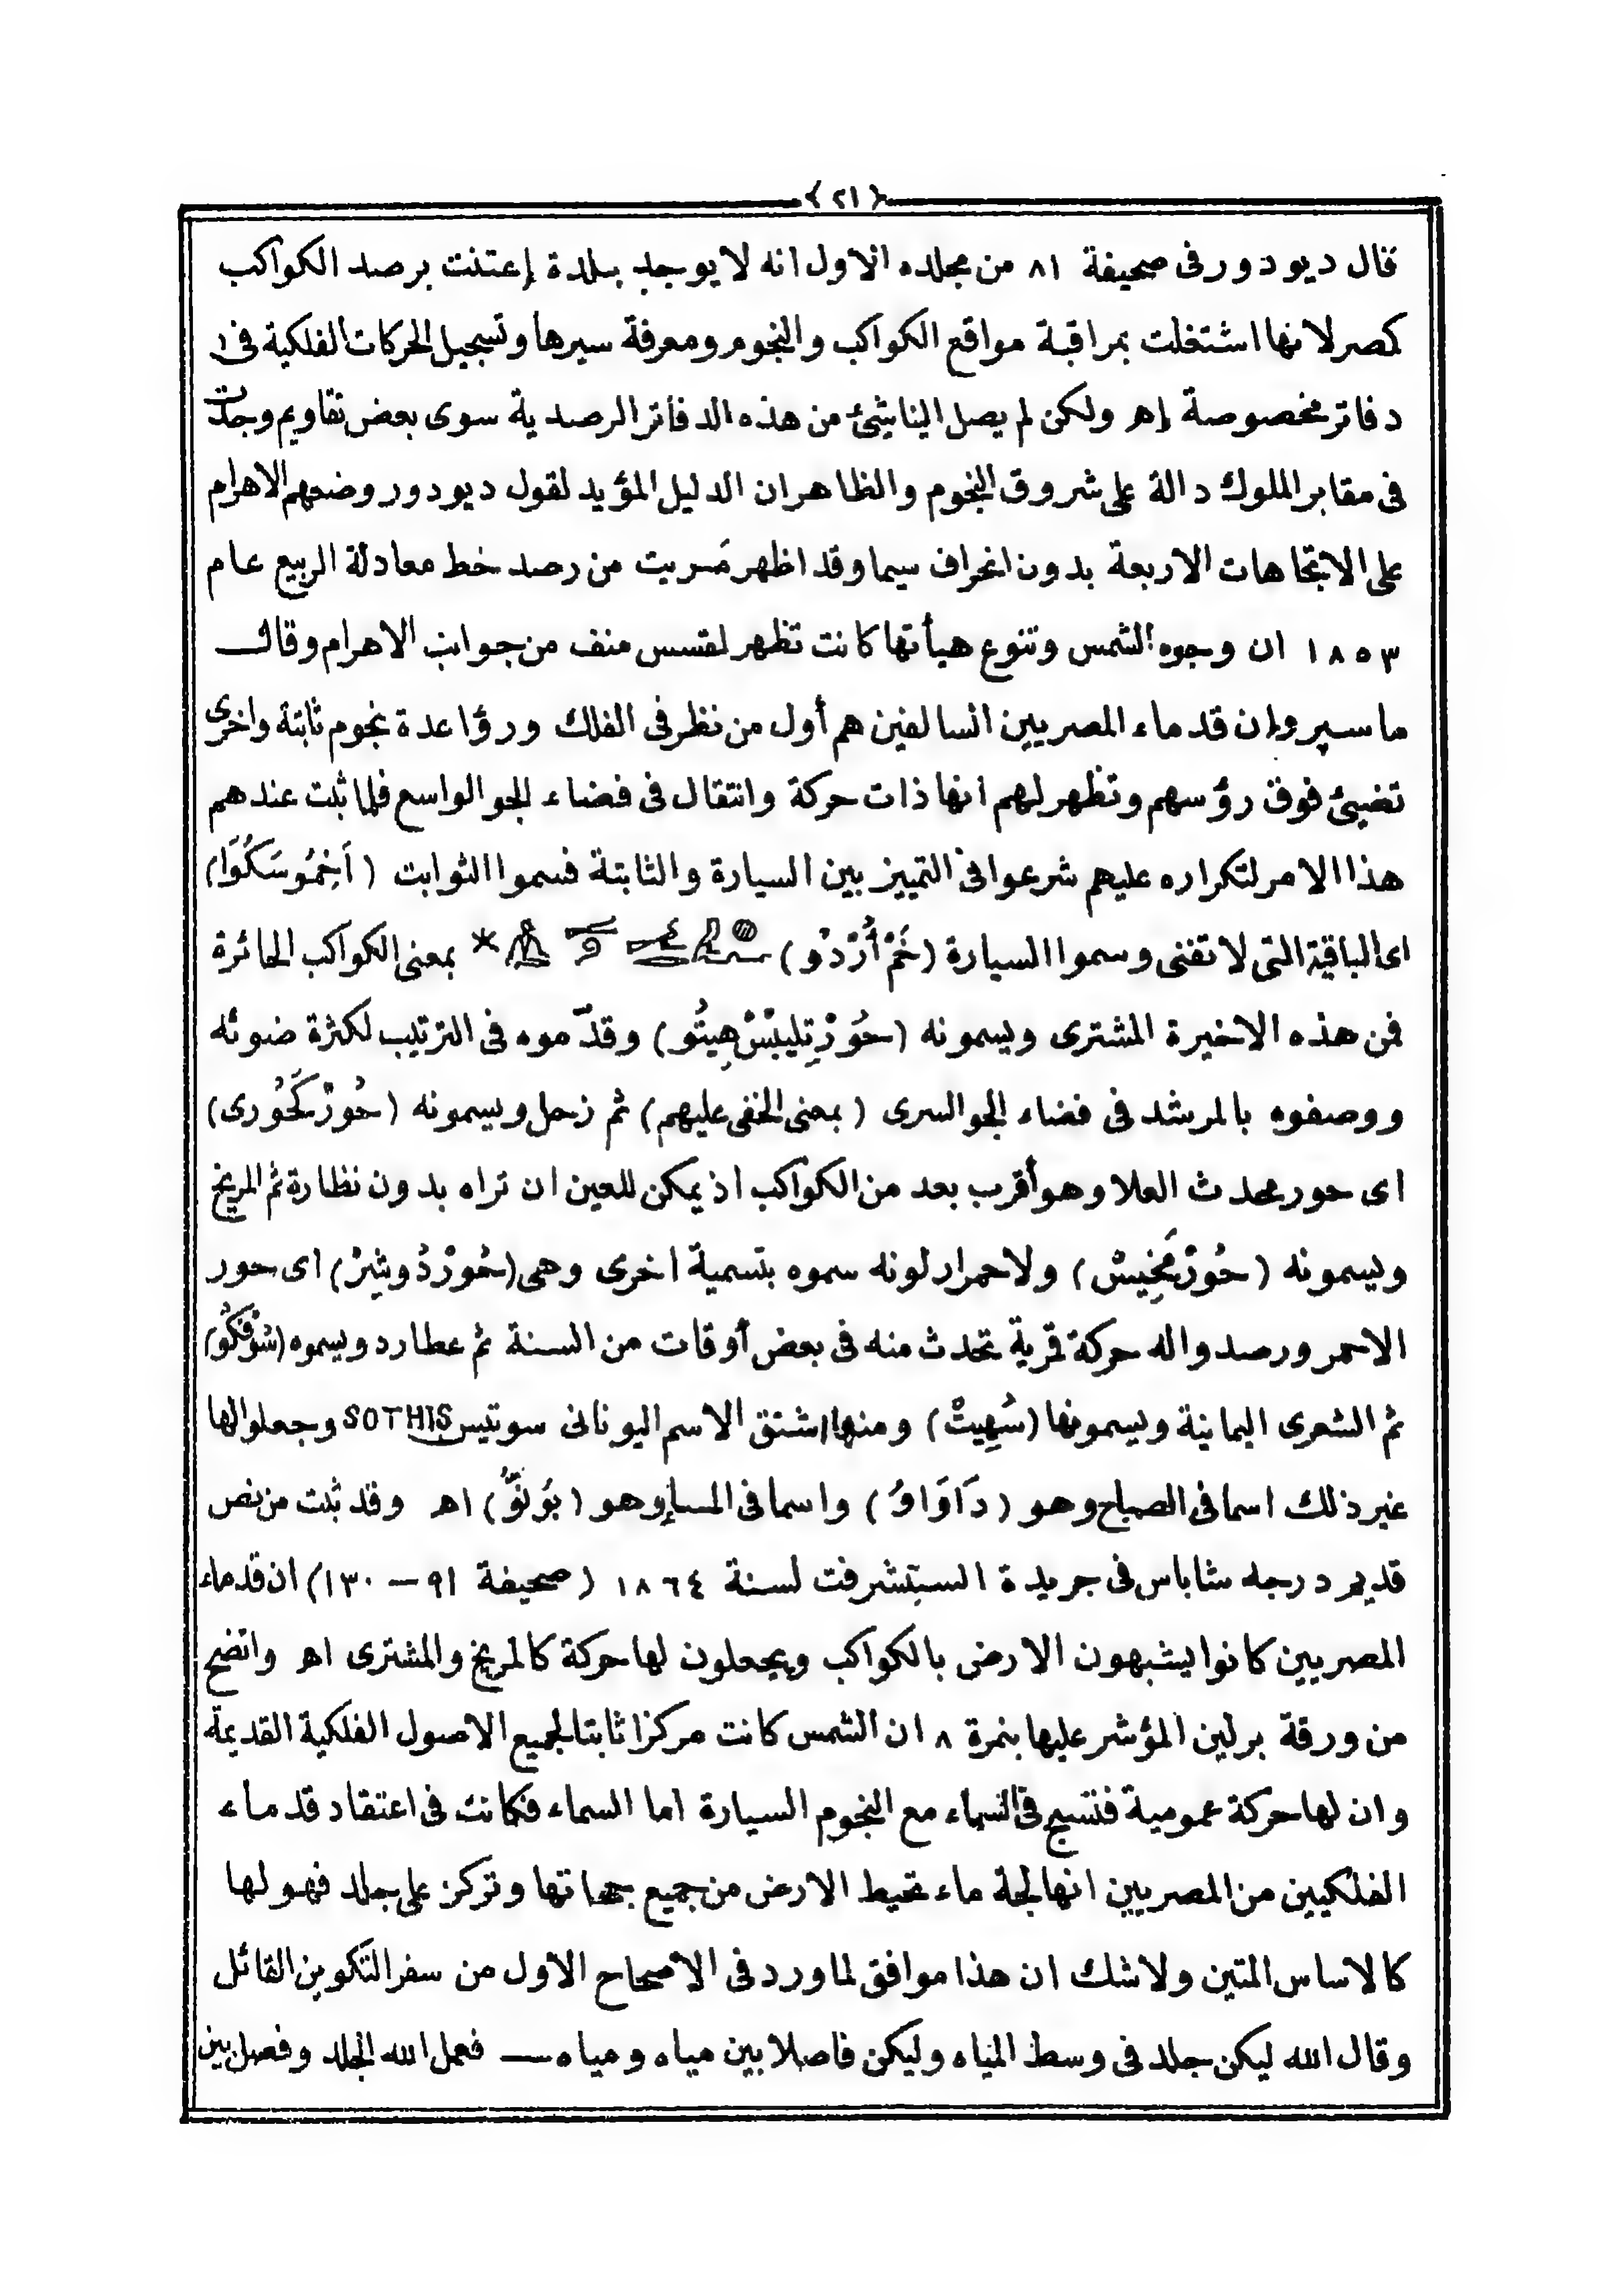 ﴿ ٢١ ﴾
قال ديودور فى صحيفة ٨١ من مجلده الاول انه لا يوجد بلدة إعتنت برصد الكواكب
كمصر لانها اشتغلت بمراقبة مواقع الكواكب والنجوم ومعرفة سيرها وتسجيل الحركات الفلكية فى
دفاتر مخصوصة إهـ ولكن لم يصل الينا شئ من هذه الدفاتر الرصدية سوى بعض تقاويم وجدت
فى مقابر الملوك دالة على شروق النجوم والظاهر ان الدليل المؤيد لقول ديودور وضعهم الاهرام
على الاتجاهات الاربعة بدون انحراف سيما وقد اظهر مَريت من رصد خط معادلة الربيع عام
١٨٥٣ ان وجوه الشمس وتنوع هيأتها كانت تظهر لقسس منف من جوانب الاهرام وقال
ماسپرو ان قدماء المصريين السالفين هم أول من نظر فى الفلك ورؤا عدة نجوم ثابتة واخرى
تضيئ فوق رؤسهم وتظهر لهم انها ذات حركة وانتقال فى فضاء الجو الواسع فلما ثبت عندهم
هذا الامر لتكراره عليهم شرعوا فى التمييز بين السيارة والثابتة فسموا الثوابت (اَخِمُوسَكُوَا)
اى الباقية التى لا تفنى وسموا السيارة (خَمْ أُرْدْو) بمعنى الكواكب الحائرة
فمن هذه الاخيرة المشترى ويسمونه (حُوَرْتِليبْسْهِيتُو) وقدّموه فى الترتيب لكثرة ضوئه
ووصفوه بالمرشد فى فضاء الجو السرى (بمعنى الخفى عليهم) ثم زحل ويسمونه (حُورْكَحُورى)
اى حور محدث العلا وهو أقرب بعد من الكواكب اذ يمكن للعين ان تراه بدون نظارة ثم المريخ
ويسمونه (حُورْمَخِيسْ) ولاحمرار لونه سموه بتسمية اخرى وهى (حُورْدُوشِرْ) اى حور
الاحمر ورصدوا له حركة قمرية تحدث منه فى بعض أوقات من السنة ثم عطارد ويسموه (سُوْفكُو)
ثم الشعرى اليمانية ويسمونها (سُهِيتْ) ومنها اشتق الاسم اليونانى سوتيس SOTHIS وجعلوا لها
غير ذلك اسما فى الصباح وهو (دَاوَاوُ) واسما فى المساء وهو (بُونوُّ) اهـ وقد ثبت من نص
قديم درجه شاباس فى جريدة السيتشرفت لسنة ١٨٦٤ (صحيفة ٩١ – ١٣٠) ان قدماء
المصريين كانوا يشبهون الارض بالكواكب ويجعلون لها حركة كالمريخ والمشترى اهـ واتضح
من ورقة برلين المؤشر عليها بنمرة ٨ ان الشمس كانت مركزا ثابتا لجميع الاصول الفلكية القديمة
وان لها حركة عمومية فتسبح فى السماء مع النجوم السيارة اما السماء فكانت فى اعتقاد قدماء
الفلكيين من المصريين انها لجة ماء تحيط الارض من جميع جهاتها وتركز على جلد فهو لها
كالاساس المتين ولاشك ان هذا موافق لما ورد فى الاصحاح الاول من سفر التكوين القائل
وقال الله ليكن جلد فى وسط المياه وليكن فاصلا بين مياه ومياه — فعمل الله الجلد وفصل بين